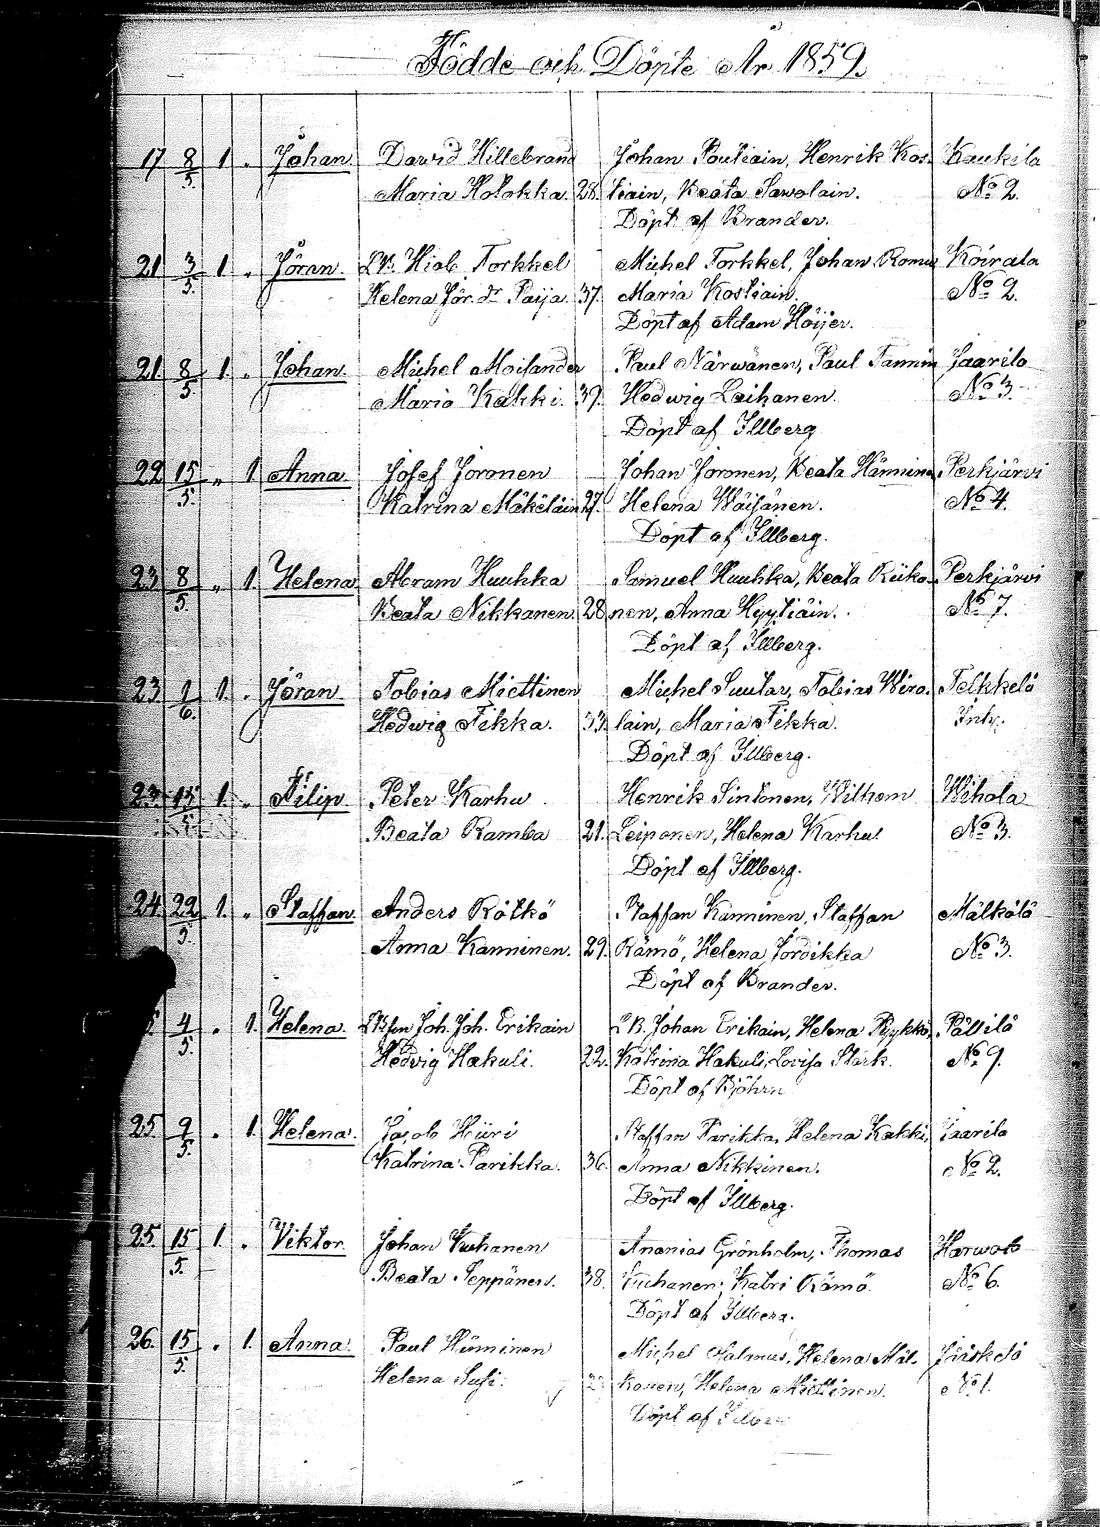 Födde och Döpte År 1859.
17 8/5. 1 „ Johan Dawid Hillebrand Johan Pouliain, Henrik Kos- Kaukila
Maria Holokka. 28. tiain, Beata Sawolain. No 2.
Döpt af Brander.
21 3/5. 1 „ Jöran. Hiob Torkkel Michel Torkkel, Johan Koirala
Helena Jör. dr Paija 37. Maria Kostiain. No 2.
Döpt af Adam Höijer.
21 8/5. 1. „ Johan Michel Moilander Paul Närwänen, Paul Jaarila
Maria Kakki. 39. Hedwig Leikanen No 3.
Döpt af Illberg
22 15/5. „ 1 Anna Josef Joronen Johan Joronen, Beata Hännine Perkjärvi
Katrina Mäkeläin 27. Helena Wäisänen. No 4.
Döpt af Illberg.
23 8/5. „ 1. Helena Abram Huuhka Samuel Huuhka, Beata Riiko- Perkjärvi
Beata Nikkanen. 28 nen, Anna Hyytiäin. No 7.
Döpt af Illberg.
23 1/6. 1. „ Jöran Tobias Miettinen Michel Suutar, Tobias Wiro- Telkkelä
Hedwig Tikka. 33. lain, Maria Tikka.
Döpt af Illberg.
23 15/5. 1. „ Filip Peter Karhu Henrik Sintonen, Wilhem Wihola
Beata Ramba 21. Leiponen, Helena Karhu No 3.
Döpt af Illberg.
24 22/5. 1. „ Staffan Anders Rötkö Staffan Kanninen, Staffan Mälkölä
Anna Kanninen. 29. Rämö, Helena Jördikka No 3.
Döpt af Brander.
4/5. „ 1. Helena Joh. Joh. Erikain Johan Erikain, Helena Pykkö, Pällilä
Hedvig Hakuli. 22. Katrina Hakuli, Lovisa Stark. No 9.
Döpt af Björhn
25 9/5. „ 1. Helena. Jacob Hiiri Staffan Parikka, Helena Kakki, Jaarila
Katrina Parikka. 36. Anna Nikkinen. No 2.
Döpt af Illberg.
25 15/5. 1. „ Viktor Johan Kuhanen Ananias Grönholm, Thomas Harwola
Beata Seppänen. 38. Kuhanen, Katri Rämö No 6.
Döpt af Illberg.
26. 15/5. „ 1. Anna. Paul Hänninen Michel Salmus, Helena Mäl- Jääskelä
Helena Susi. konen, Helena Miettinen. No 1.
Döpt af Illberg